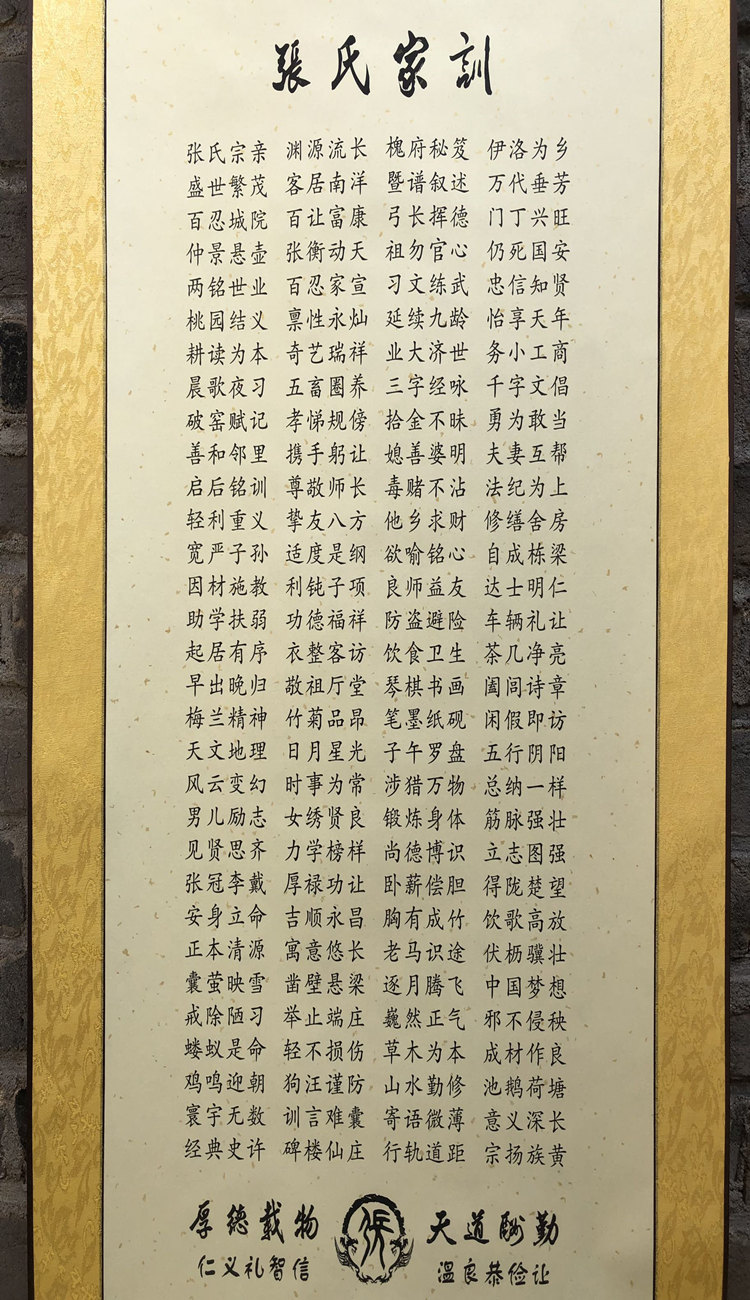 張氏家訓
张氏宗亲 渊源流长 槐府秘笈 伊洛为乡
盛世繁茂 客居南洋 暨谱叙述 万代垂芳
百忍城院 百让富康 弓长挥德 门丁兴旺
仲景悬壶 张衡动天 祖勿官心 仍死国安
两铭世业 百忍家宣 习文练武 忠信知贤
桃园结义 禀性永灿 延续九龄 怡享天年
耕读为本 奇艺瑞祥 业大济世 务小工商
晨歌夜习 五畜圈养 三字经咏 千字文倡
破窑赋记 孝悌规傍 拾金不昧 勇为敢当
善和邻里 携手躬让 媳善婆明 夫妻互帮
启后铭训 尊敬师长 毒赌不沾 法纪为上
轻利重义 挚友八方 他乡求财 修缮舍房
宽严子孙 适度是纲 欲喻铭心 自成栋梁
因材施教 利钝子项 良师益友 达士明仁
助学扶弱 功德福祥 防盗避险 车辆礼让
起居有序 衣整客访 饮食卫生 茶几净亮
早出晚归 敬祖厅堂 琴棋书画 阖闾诗章
梅兰精神 竹菊品昂 笔墨纸砚 闲假即访
天文地理 日月星光 子午罗盘 五行阴阳
风云变幻 时事为常 涉猎万物 总纳一样
男儿励志 女绣贤良 锻炼身体 筋脉强壮
见贤思齐 力学榜样 尚德博识 立志图强
张冠李戴 厚禄功让 卧薪偿胆 得陇楚望
安身立命 吉顺永昌 胸有成竹 饮歌高放
正本清源 寓意悠长 老马识途 伏枥骥壮
囊萤映雪 凿壁悬梁 逐月腾飞 中国梦想
戒除陋习 举止端庄 巍然正气 邪不侵秧
蝼蚁是命 轻不损伤 草木为本 成材作良
鸡鸣迎朝 狗汪谨防 山水勤修 池鹅荷塘
寰宇无数 训言难囊 寄语微薄 意义深长
经典史许 碑楼仙庄 行轨道距 宗扬族黄
厚德载物 张 天道酬勤
仁义礼智信 温良恭俭让